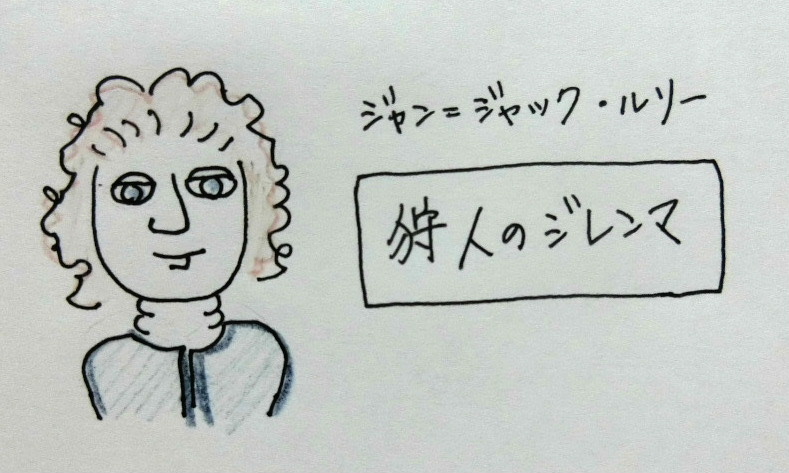 ジャン=ジャック・ルソー
狩人のジレンマ